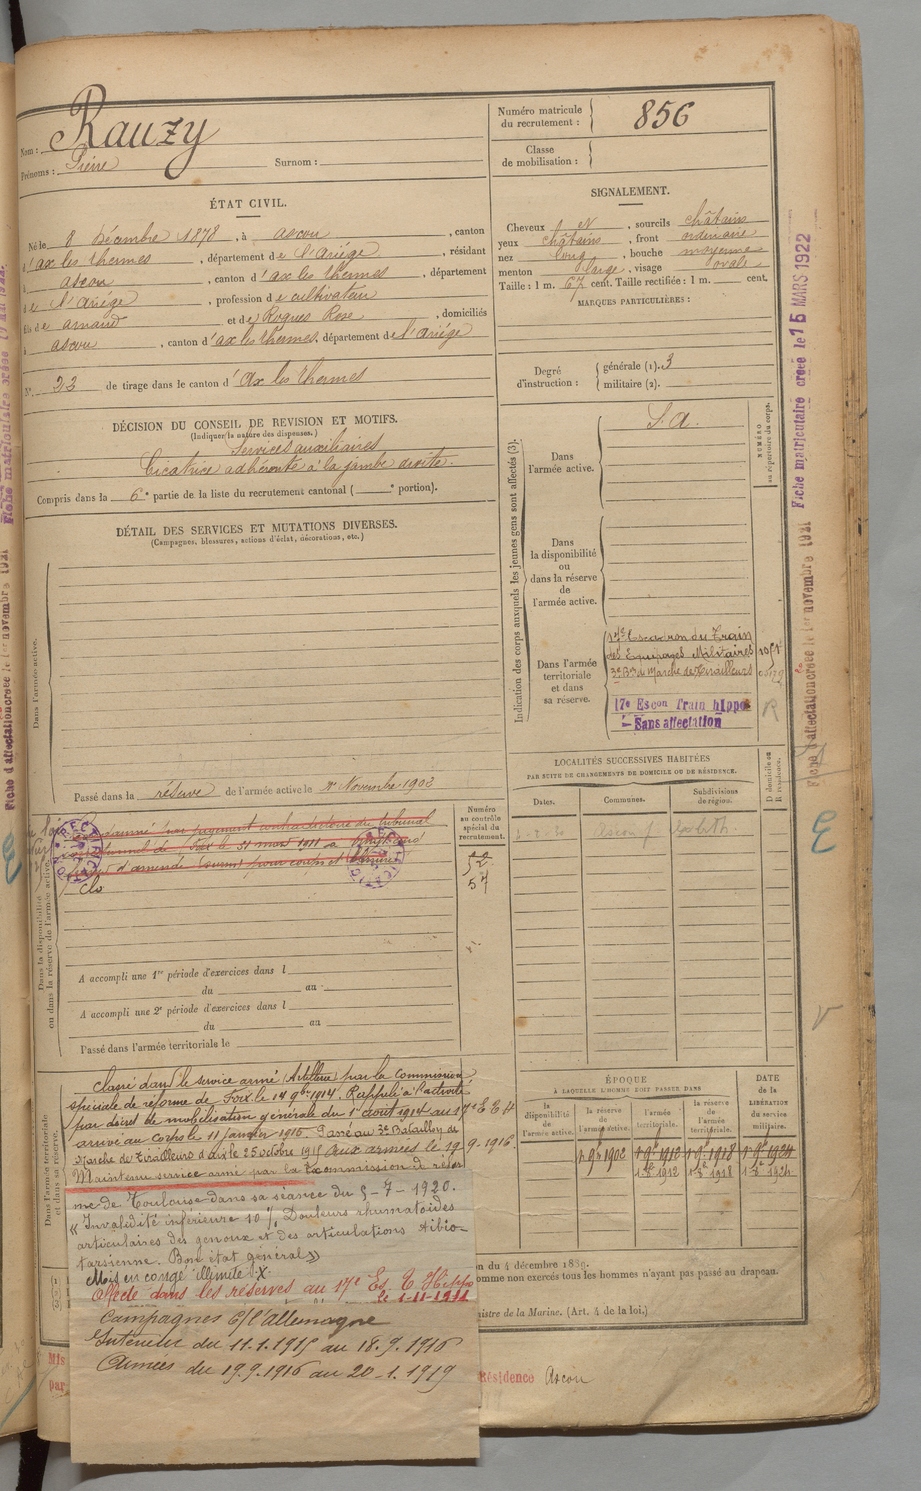 Nom : Rauzy
Prénoms : Pierre Surnom :
Numéro matricule
du recrutement : 856
Classe
de mobilisation :
ÉTAT CIVIL.
Né le 8 Décembre 1878, à Ascou, canton
d'Ax les Thermes, département de l'Ariège, résidant
à Ascou, canton d'Ax les Thermes, département
de l'Ariège, profession de cultivateur
fils de Arnaud et de Rogues Rose, domiciliés
à Ascou, canton d'Ax les Thermes, département de l'Ariège
N° 23 de tirage dans le canton d'Ax les Thermes
SIGNALEMENT.
Cheveux N, sourcils châtains
yeux châtains, front ordinaire
nez long, bouche moyenne
menton large, visage ovale
Taille : 1 m. 67 cent. Taille rectifiée : 1 m. cent.
MARQUES PARTICULIÈRES :
Degré
d'instruction :
générale (1). 3
militaire (2).
DÉCISION DU CONSEIL DE REVISION ET MOTIFS.
(Indiquer la nature des dispenses.)
Services auxiliaires
Cicatrice adhérente à la jambe droite.
Compris dans la 6e partie de la liste du recrutement cantonal ( e portion).
DÉTAIL DES SERVICES ET MUTATIONS DIVERSES.
(Campagnes, blessures, actions d'éclat, décorations, etc.)
Dans l'armée active.
Passé dans la réserve de l'armée active le 1er Novembre 1902
Indication des corps auxquels les jeunes gens sont affectés (3).
NUMÉRO
au répertoire du corps.
Dans
l'armée active.
S. A.
Dans
la disponibilité
ou
dans la réserve
de
l'armée active.
Dans l'armée
territoriale
et dans
sa réserve.
17e Escadron du Train
des Equipages Militaires
3e Bn de Marche de Tirailleurs
17e Escon Train hippo
Sans affectation
R
LOCALITÉS SUCCESSIVES HABITÉES
PAR SUITE DE CHANGEMENTS DE DOMICILE OU DE RÉSIDENCE.
Dates. Communes. Subdivisions
de région. D domicile ou
R résidence.
Ascou
Numéro
au contrôle
spécial du
recrutement.
52
57
Dans la disponibilité
ou dans la réserve de l'armée active.
jugement contradictoire du tribunal
de Foix le 31 mars 1911 à
d'amende
RECTIFICATION
A accompli une 1re période d'exercices dans l
du au
A accompli une 2e période d'exercices dans l
du au
Passé dans l'armée territoriale le
Dans l'armée territoriale
et dans sa réserve.
Classé dans le service armé (Artillerie) par la Commission
spéciale de réforme de Foix le 14 9bre 1914. Rappelé à l'activité
par décret de mobilisation générale du 1er août 1914 au 17e E E M
arrivé au Corps le 11 janvier 1915. Passé au 3e Bataillon de
Marche de Tirailleurs d'Afrique le 25 octobre 1915 Aux armées le 19.9.1916
Maintenu service armé par la Commission de réfor
me de Toulouse dans sa séance du 5-7-1920.
« Invalidité inférieure 10 %. Douleurs rhumatoïdes
articulaires des genoux et des articulations tibio-
tarsienne. Bon état général »
Mis en congé illimité X.
Affecté dans les réserves au 17e Es. T. Hippo
Campagnes C/ l'Allemagne
Intérieur du 11.1.1915 au 18.9.1916
Armées du 19.9.1916 au 20-1.1919
ÉPOQUE
À LAQUELLE L'HOMME DOIT PASSER DANS
la
disponibilité
de
l'armée active.
la réserve
de
l'armée active.
l'armée
territoriale.
la réserve
de
l'armée
territoriale.
DATE
de la
LIBÉRATION
du service
militaire.
1er 9bre 1902 1er 9bre 1912 1er 9bre 1918 1er 9bre 1924
1912 1918 1924
on du 4 décembre 1889.
omme non exercés tous les hommes n'ayant pas passé au drapeau.
nistre de la Marine. (Art. 4 de la loi.)
Résidence Ascou
Fiche matriculaire créée le 15 MARS 1922
Fiche d'affectation créée le 1er novembre 1921
E